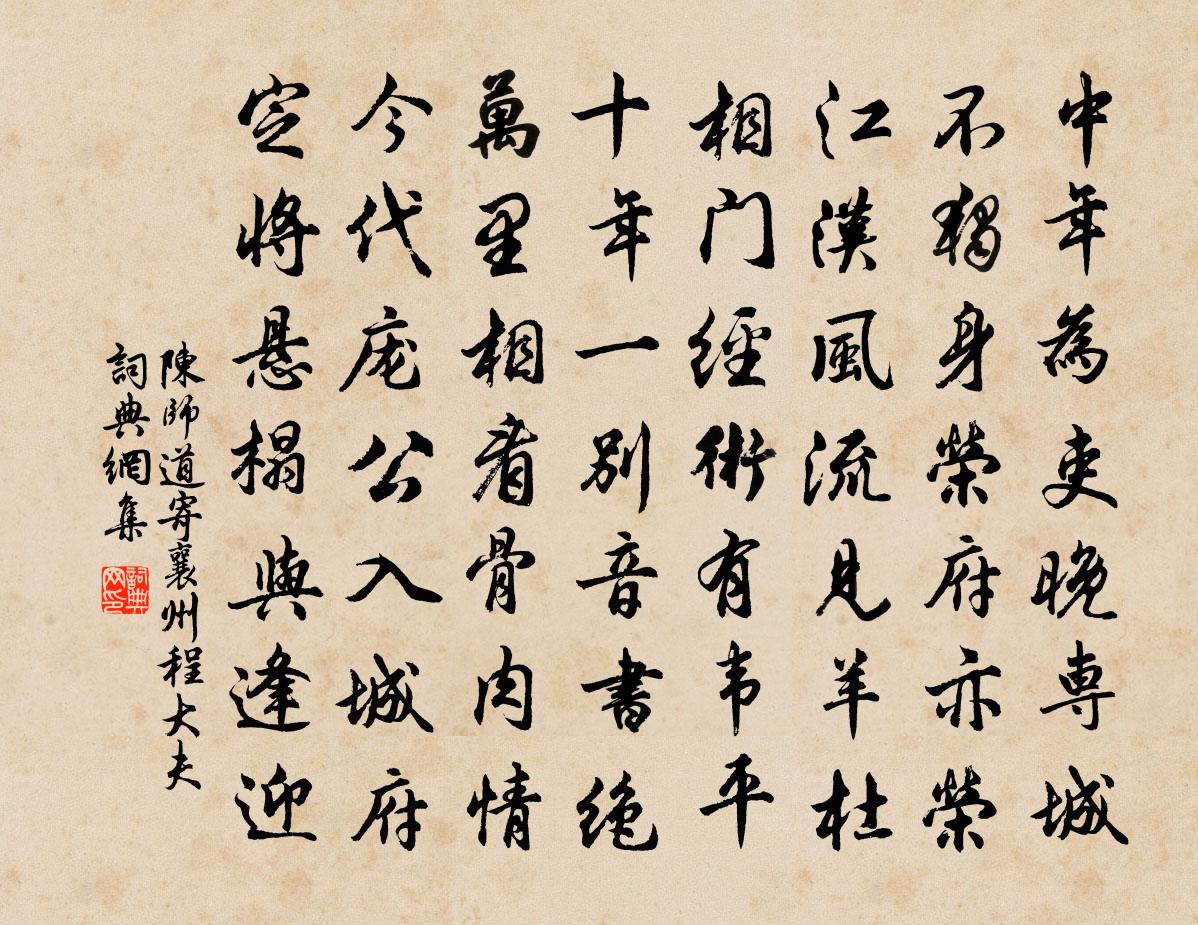 中年為吏晚專城
不獨身榮府亦榮
江漢風流見羊杜
相門經術有韦平
十年一別音書絶
萬里相看骨肉情
今代庞公入城府
定將悬榻與逢迎
陳師道寄襄州程大夫
詞典網集
詞典网印